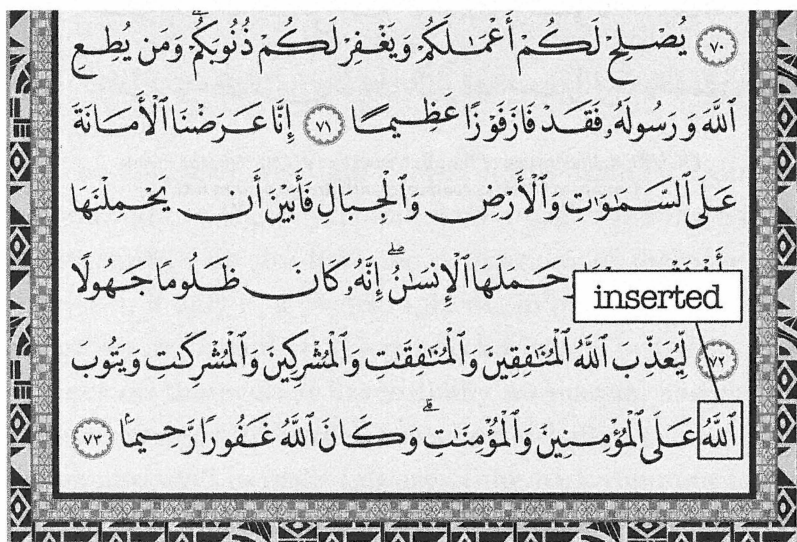 ٧٠ يُصْلِحْ لَكُمْ أَعْمَٰلَكُمْ وَيَغْفِرْ لَكُمْ ذُنُوبَكُمْ ۗ وَمَن يُطِعِ
ٱللَّهَ وَرَسُولَهُۥ فَقَدْ فَازَ فَوْزًا عَظِيمًا ٧١ إِنَّا عَرَضْنَا ٱلْأَمَانَةَ
عَلَى ٱلسَّمَٰوَٰتِ وَٱلْأَرْضِ وَٱلْجِبَالِ فَأَبَيْنَ أَن يَحْمِلْنَهَا
وَحَمَلَهَا ٱلْإِنسَٰنُ ۖ إِنَّهُۥ كَانَ ظَلُومًا جَهُولًا
inserted
٧٢ لِّيُعَذِّبَ ٱللَّهُ ٱلْمُنَٰفِقِينَ وَٱلْمُنَٰفِقَٰتِ وَٱلْمُشْرِكِينَ وَٱلْمُشْرِكَٰتِ وَيَتُوبَ
ٱللَّهُ عَلَى ٱلْمُؤْمِنِينَ وَٱلْمُؤْمِنَٰتِ ۗ وَكَانَ ٱللَّهُ غَفُورًا رَّحِيمًۢا ٧٣